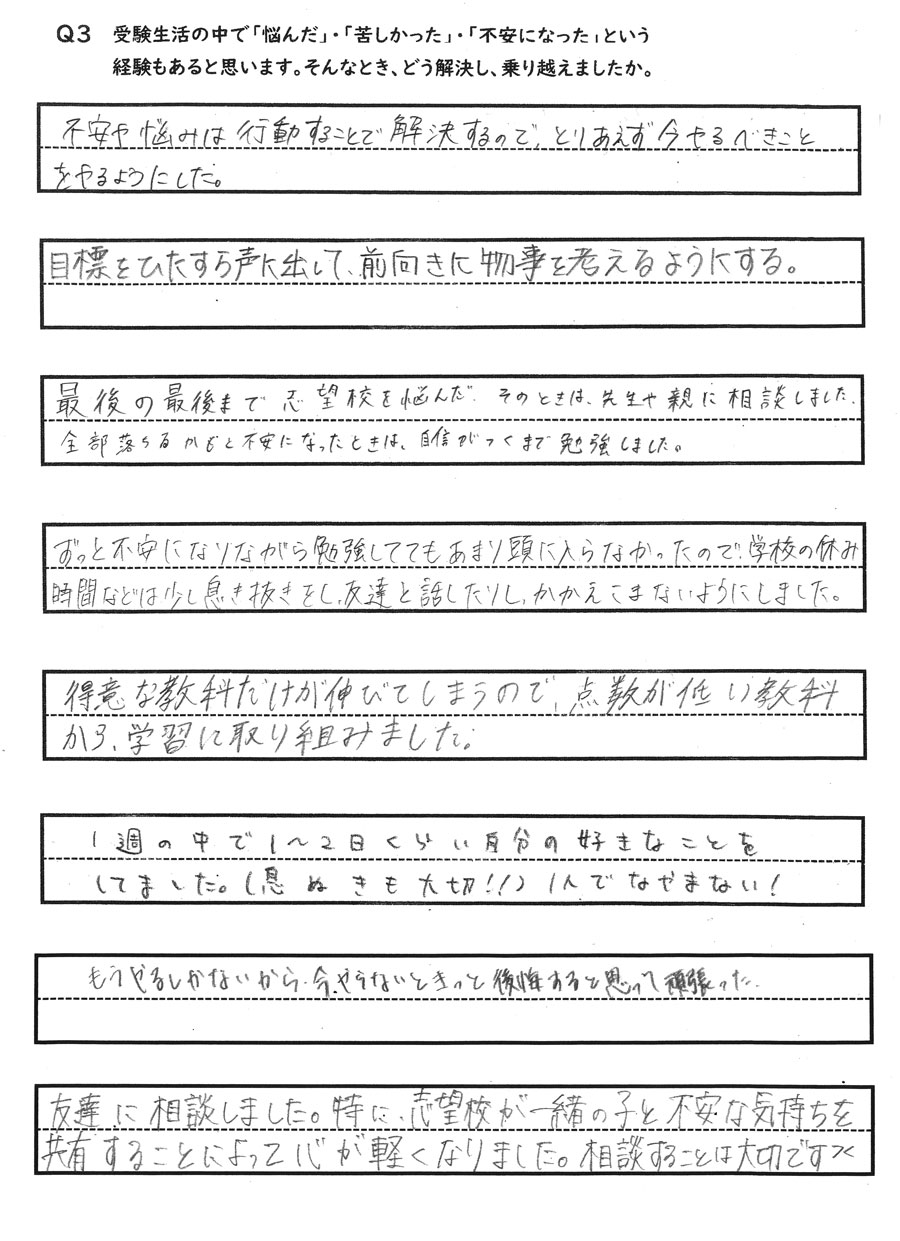 Q3 受験生活の中で「悩んだ」・「苦しかった」・「不安になった」という
経験もあると思います。そんなとき、どう解決し、乗り越えましたか。
不安や悩みは行動することで解決するので、とりあえず今やるべきこと
をやるようにした。
目標をひたすら声に出して、前向きに物事を考えるようにする。
最後の最後まで志望校を悩んだ. そのときは、先生や親に相談しました.
全部落ちるかもと不安になったときは、自信がつくまで勉強しました。
ずっと不安になりながら勉強しててもあまり頭に入らなかったので、学校の休み
時間などは少し息き抜きをし、友達と話したりし、かかえこまないようにしました。
得意な教科だけが伸びてしまうので、点数が低い教科
から、学習に取り組みました。
1週の中で1〜2日くらい自分の好きなことを
してました。(息ぬきも大切!!) 1人でなやまない!
もうやるしかないから、今やらないときっと後悔すると思って頑張った.
友達に相談しました。特に、志望校が一緒の子と不安な気持ちを
共有することによって心が軽くなりました。相談することは大切です